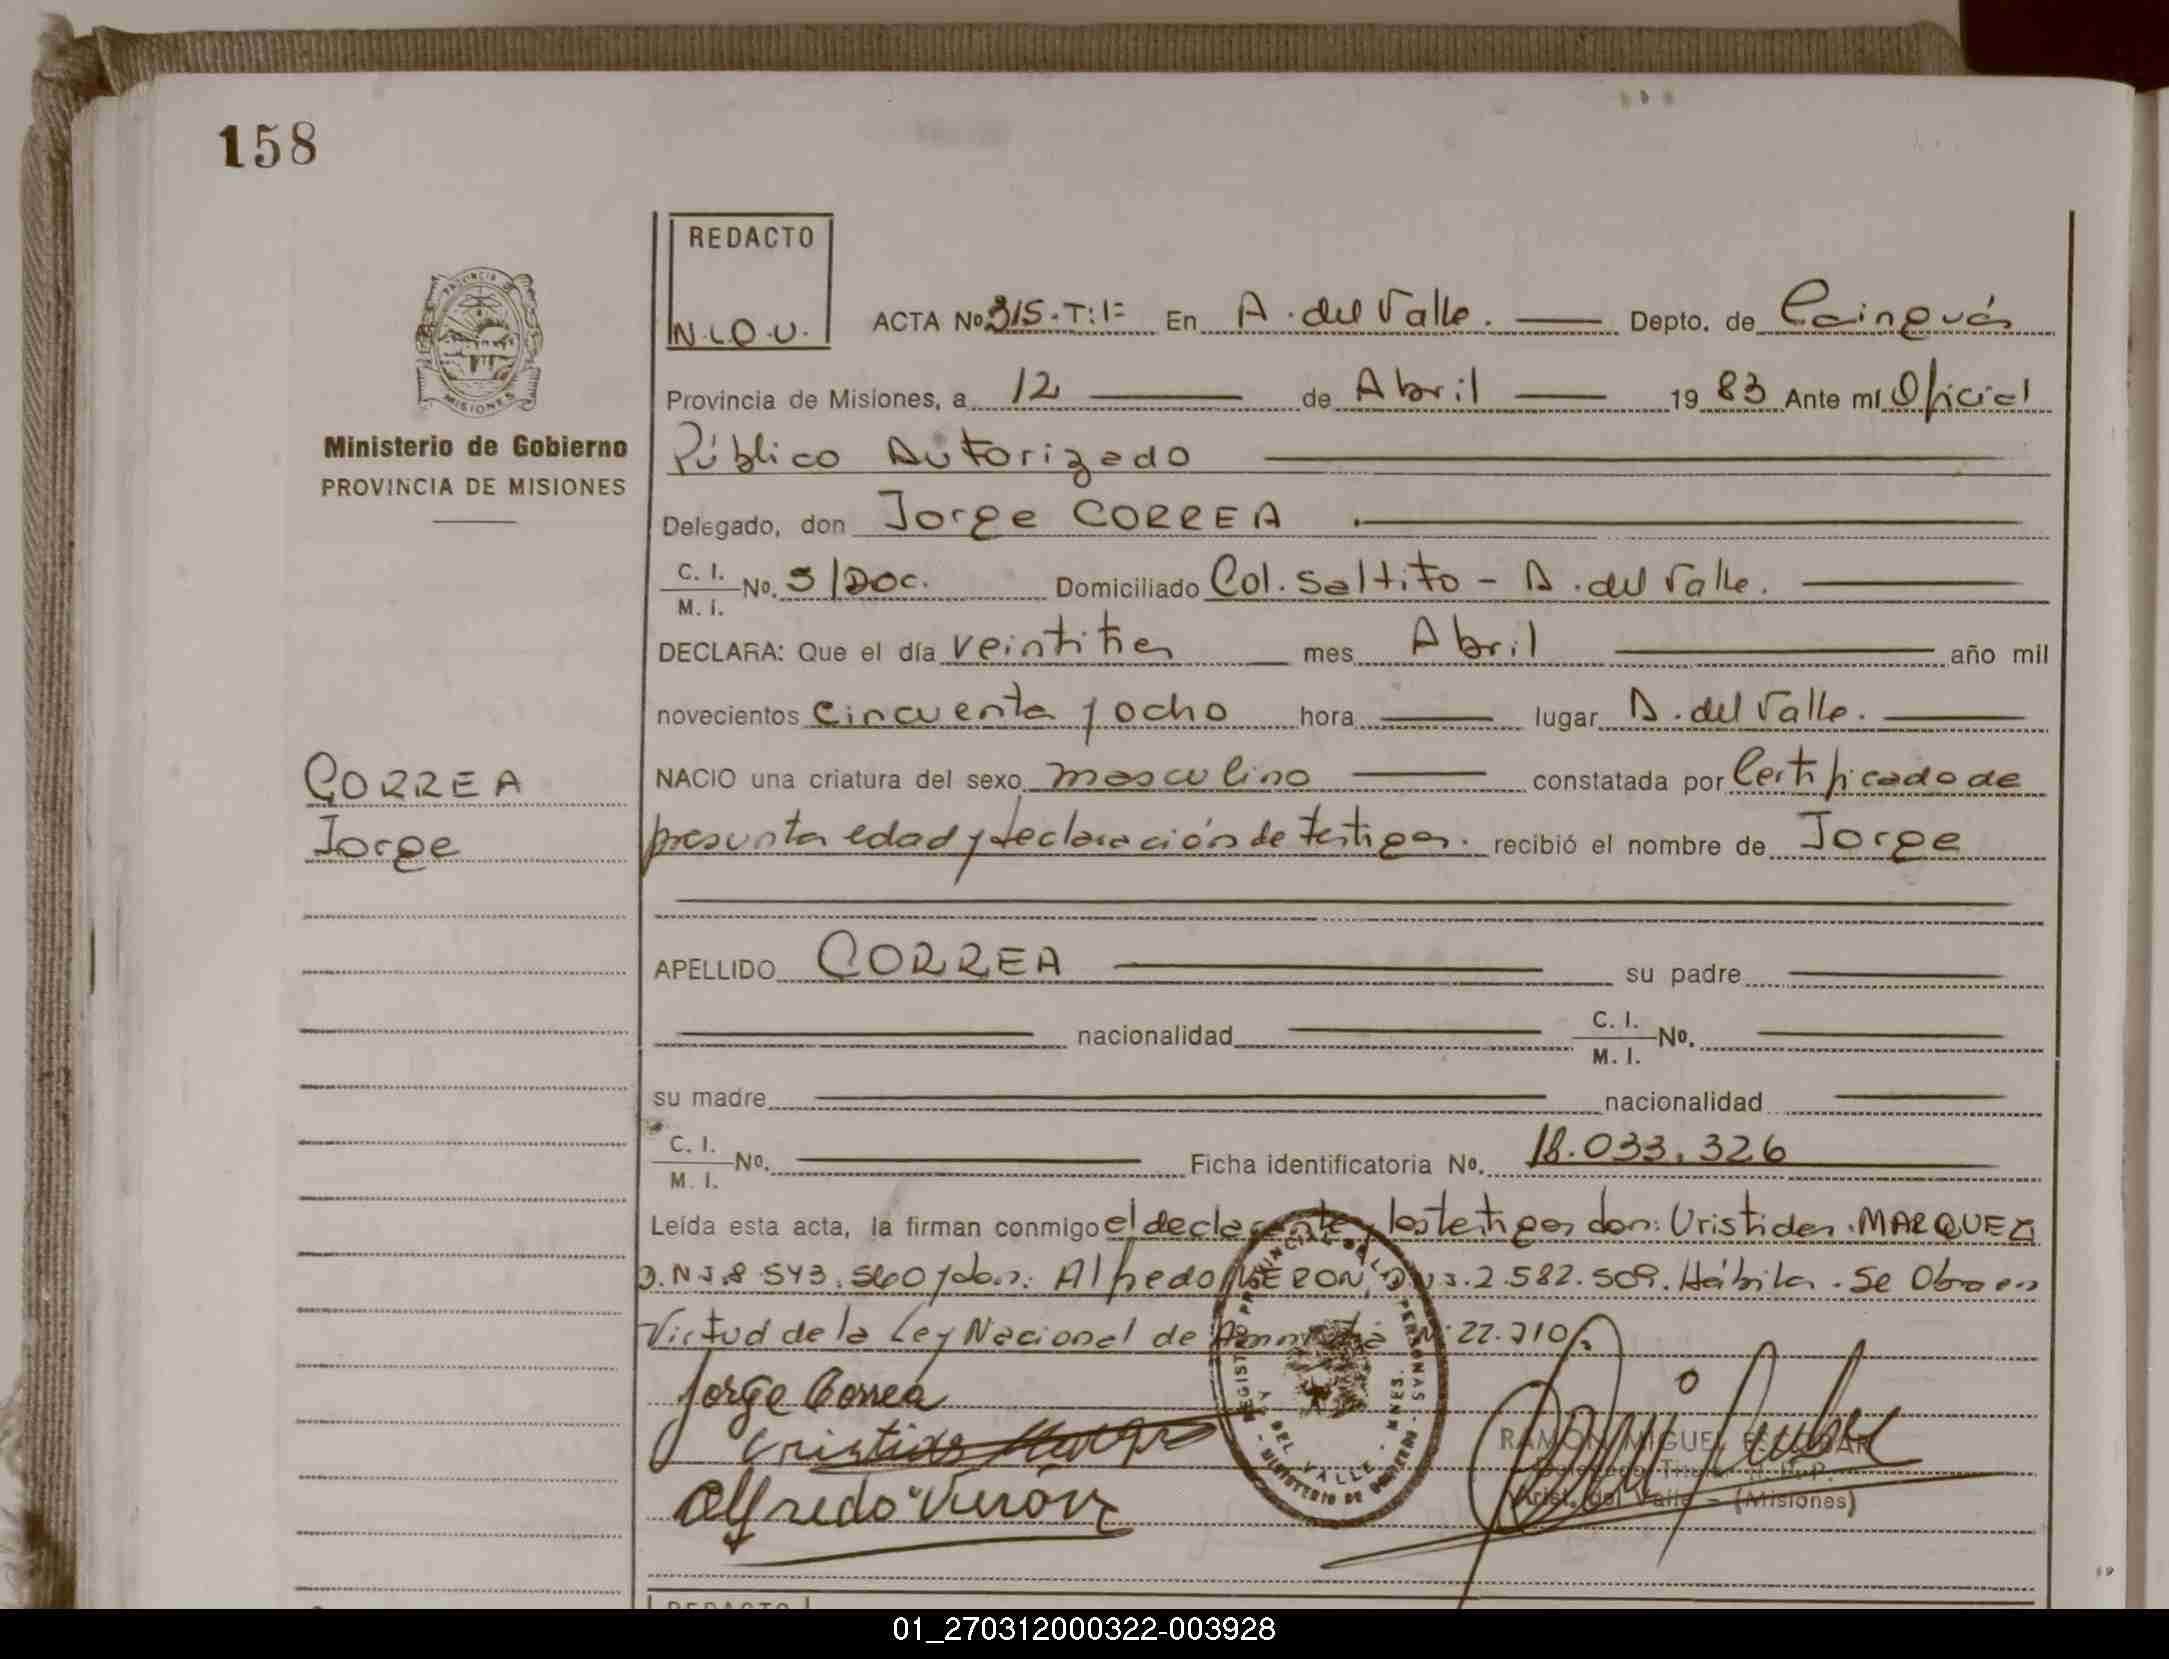 158
REDACTO
N.L.O.U.
ACTA No 315. T: 1º En A. del Valle. Depto. de Cainguás
Provincia de Misiones, a 12 de Abril 19 83 Ante mí Oficial
Ministerio de Gobierno
PROVINCIA DE MISIONES
Público Autorizado
Delegado, don Jorge CORREA
C. I. M. I. No. S/Doc. Domiciliado Col. Saltito - A. del Valle.
DECLARA: Que el día veintitres mes Abril año mil
novecientos cincuenta y ocho hora lugar A. del Valle.
CORREA
Jorge
NACIO una criatura del sexo masculino constatada por Certificado de
presunta edad y declaración de testigos. recibió el nombre de Jorge
APELLIDO CORREA su padre
nacionalidad C. I. M. I. No.
su madre nacionalidad
C. I. M. I. No. Ficha identificatoria No. 18.033.326
Leída esta acta, la firman conmigo el declarante y los testigos don: Cristides MARQUEZ
D.N.I. 8.543.560 y don: Alfredo VERON, D.N.I. 2.582.509. Hábiles. Se Obra en
Virtud de la Ley Nacional de Amnistía Nº 22.710.
Jorge Correa
Alfredo Verón
RAMON MIGUEL ESCOBAR
Delegado Titular R.P.P.
Arist. del Valle - (Misiones)
REDACTO
01_270312000322-003928